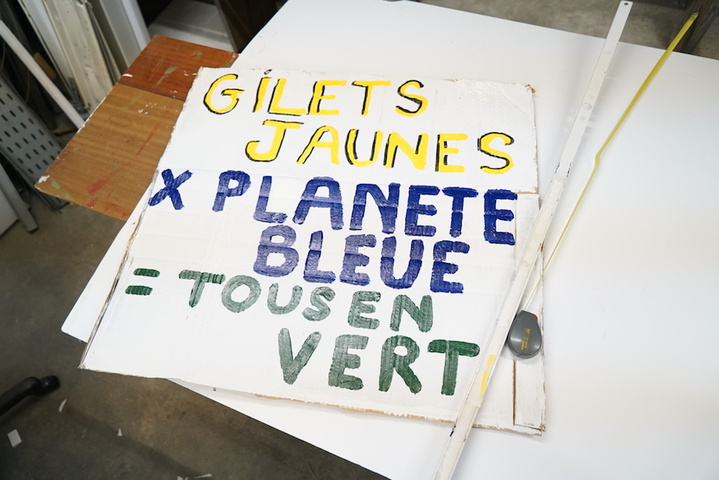 GILETS
JAUNES
X PLANETE
BLEUE
= TOUS EN
VERT